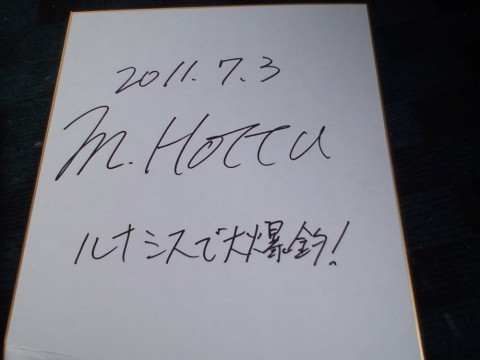 2011.7.3
M.Hotta
ルナシスで大爆釣!